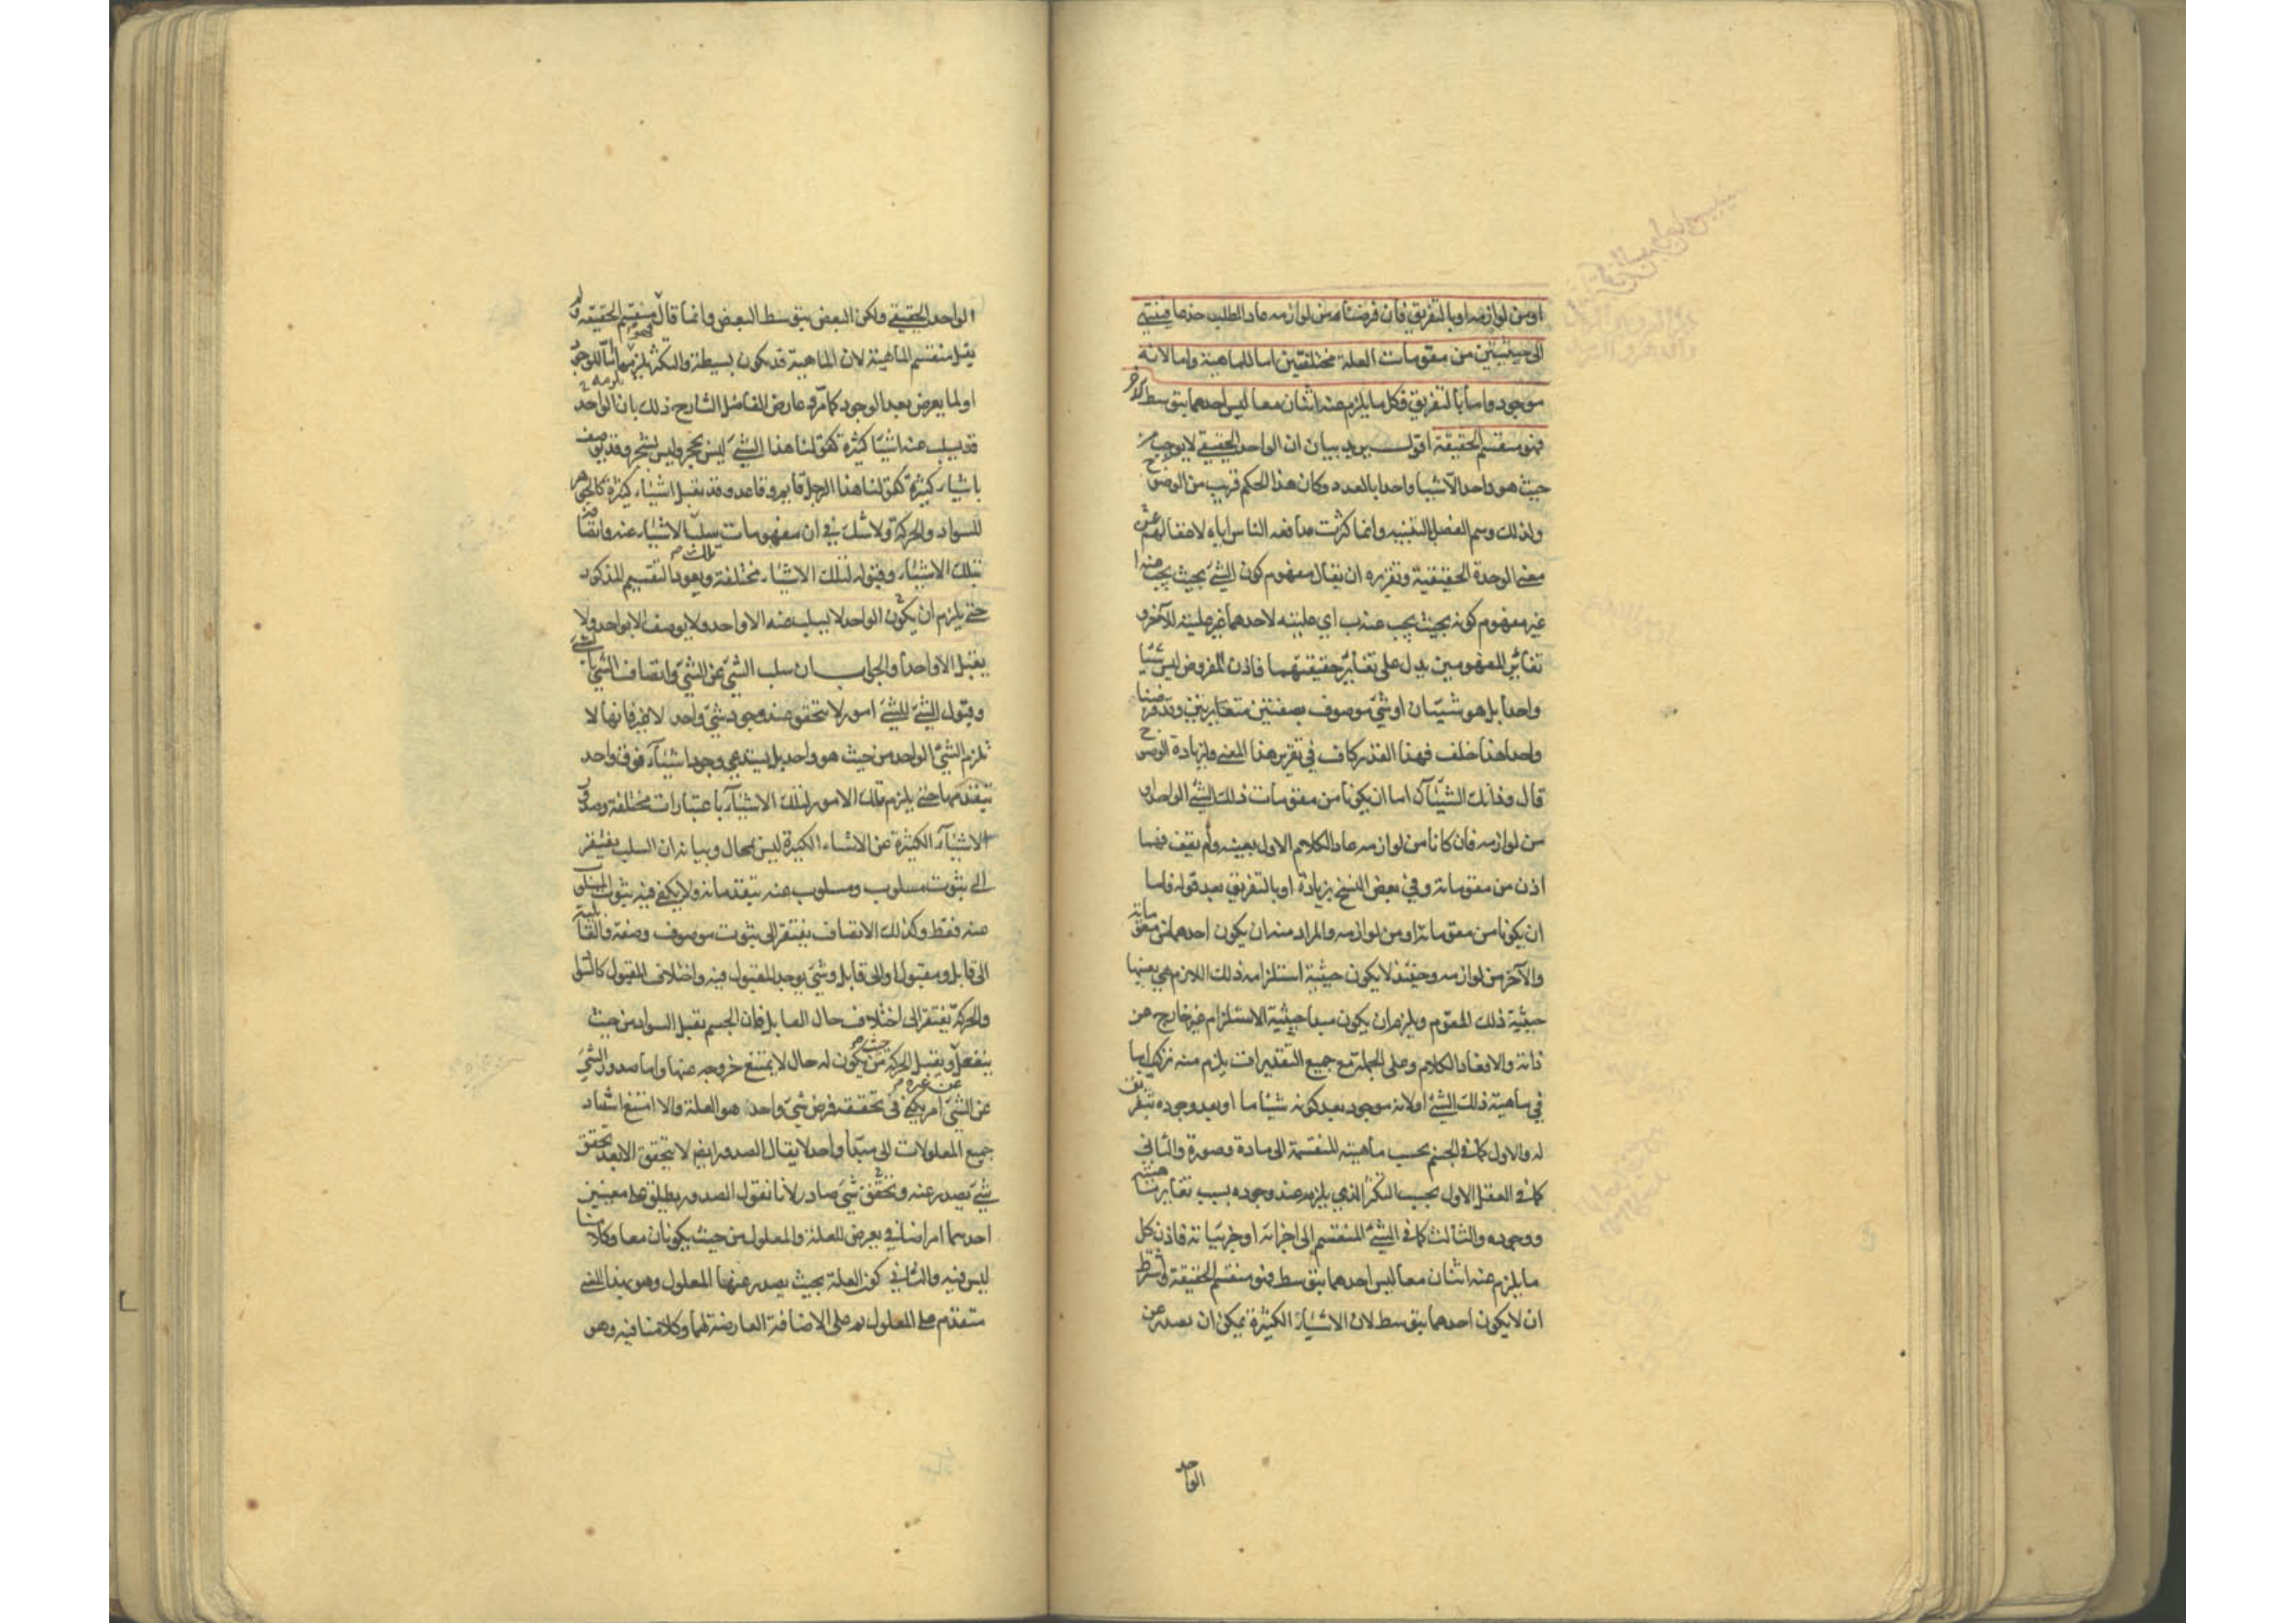 او من لوازمه او بالتفريق فان فرضتا من لوازمه عاد الطلب جذعا فينتهي
الى حيثيتين من مقومات العلة مختلفتين اما للماهية واما لانه
موجود واما بالتفريق فكل ما يلزم عنه اثنان معا ليس احدهما بتوسط الاخر
فهو منقسم الحقيقة اقول يريد بيان ان الواحد الحقيقي لا يوجب من
حيث هو واحد الا شيئا واحدا بالعدد وكان هذا الحكم قريب من الوضوح
ولذلك وسم الفصل بالتنبيه وانما كثرت مدافعة الناس اياه لاغفالهم عن
معنى الوحدة الحقيقية وتقريره ان يقال مفهوم كون الشئ بحيث يجب عنه ا
غير مفهوم كونه بحيث يجب عنه ب اي عليته لاحدهما غير عليته للآخر و
تغاير المفهومين يدل على تغاير حقيقتهما فاذن المفروض ليس شيئا
واحدا بل هو شيئان او شئ موصوف بصفتين متغايرتين وقد فرضنا
واحدا هذا خلف فهذا القدر كاف في تقرير هذا المعنى ولزيادة الوضوح
قال وذانك الشيئان اما ان يكونا من مقومات ذلك الشئ الواحد او
من لوازمه فان كانا من لوازمه عاد الكلام الاول بعينه ولم يقف فهما
اذن من مقوماته وفي بعض النسخ بزيادة او بالتفريق بعد قوله فاما
ان يكونا من مقوماته او من لوازمه والمراد منه ان يكون احدهما من مقوماته
والآخر من لوازمه وحينئذ لا يكون حيثية استلزامه ذلك اللازم هي بعينها
حيثية ذلك المقوم ويلزم ان يكون مبدأ حيثية الاستلزام غير خارج عن
ذاته والا فعاد الكلام وعلى الجملة مع جميع التقديرات يلزم منه تركيب اما
في ماهية ذلك الشئ او لانه موجود بعد كونه شيئا ما او بعد وجوده بتفريق
له والاول كما في الجسم بحسب ماهيته المنقسمة الى مادة وصورة والثاني
كما في العقل الاول بحسب التكثر الذي يلزمه عند وجوده بسبب تغاير ماهيته
ووجوده والثالث كما في الشئ المنقسم الى اجزائه او جزئياته فاذن كل
ما يلزم عنه اثنان معا ليس احدهما بتوسط فهو منقسم الحقيقة واشترط
ان لا يكون احدهما بتوسط لان الاشياء الكثيرة يمكن ان يصدر عن
الواحد
الواحد الحقيقي ولكن البعض بتوسط البعض وانما قال منقسم الحقيقة ولم
يقل منقسم الماهية لان الماهية قد يكون بسيطة والتكثر يلزمها اما للوجود
او لما يعرض بعد الوجود كما مر وعارض الفاضل الشارح ذلك بان الواحد
قد يسلب عنه اشياء كثيرة كقولنا هذا الشئ ليس بحجر وليس بشجر وقد يوصف
باشياء كثيرة كقولنا هذا الرجل قايم وقاعد وقد يقبل اشياء كثيرة كالجوهر
للسواد والحركة ولا شك في ان مفهومات سلب الاشياء عنه واتصافه
بتلك الاشياء وقبوله لتلك الاشياء مختلفة ويعود التقسيم المذكور
حتى يلزم ان يكون الواحد لا يسلب عنه الا واحد ولا يوصف الا بواحد ولا
يقبل الا واحدا والجواب ان سلب الشئ عن الشئ واتصاف الشئ بالشئ
وقبول الشئ للشئ امور لا تتحقق عند وجود شئ واحد لا غير فانها لا
تلزم الشئ الواحد من حيث هو واحد بل يستدعي وجود اشياء فوق واحد
تتقدمها حتى يلزم تلك الامور لتلك الاشياء باعتبارات مختلفة وصدور
الاشياء الكثيرة عن الاشياء الكثيرة ليس بمحال وبيانه ان السلب يفتقر
الى ثبوت مسلوب ومسلوب عنه يتقدمانه ولا يكفي فيه ثبوت المسلوب
عنه فقط وكذلك الاتصاف يفتقر الى ثبوت موصوف وصفة والقابلية
الى قابل ومقبول او الى قابل وشئ يوجد المقبول فيه واختلاف المقبول كالسواد
والحركة يفتقر الى اختلاف حال القابل فان الجسم يقبل السواد من حيث
ينفعل ويقبل الحركة من حيث يكون له حال لا يمتنع خروجه عنها واما صدور الشئ
عن الشئ امر يكفي في تحققه فرض شئ واحد هو العلة والا امتنع استناد
جميع المعلولات الى مبدأ واحد لا يقال الصدور ايضا لا يتحقق الا بعد تحقق
شئ يصدر عنه وتحقق شئ صادر لانا نقول الصدور يطلق على معنيين
احدهما امر اضافي يعرض للعلة والمعلول من حيث يكونان معا وكلامنا
ليس فيه والثاني كون العلة بحيث يصدر عنها المعلول وهو بهذا المعنى
متقدم على المعلول ثم على الاضافة العارضة لهما وكلامنا فيه وهو